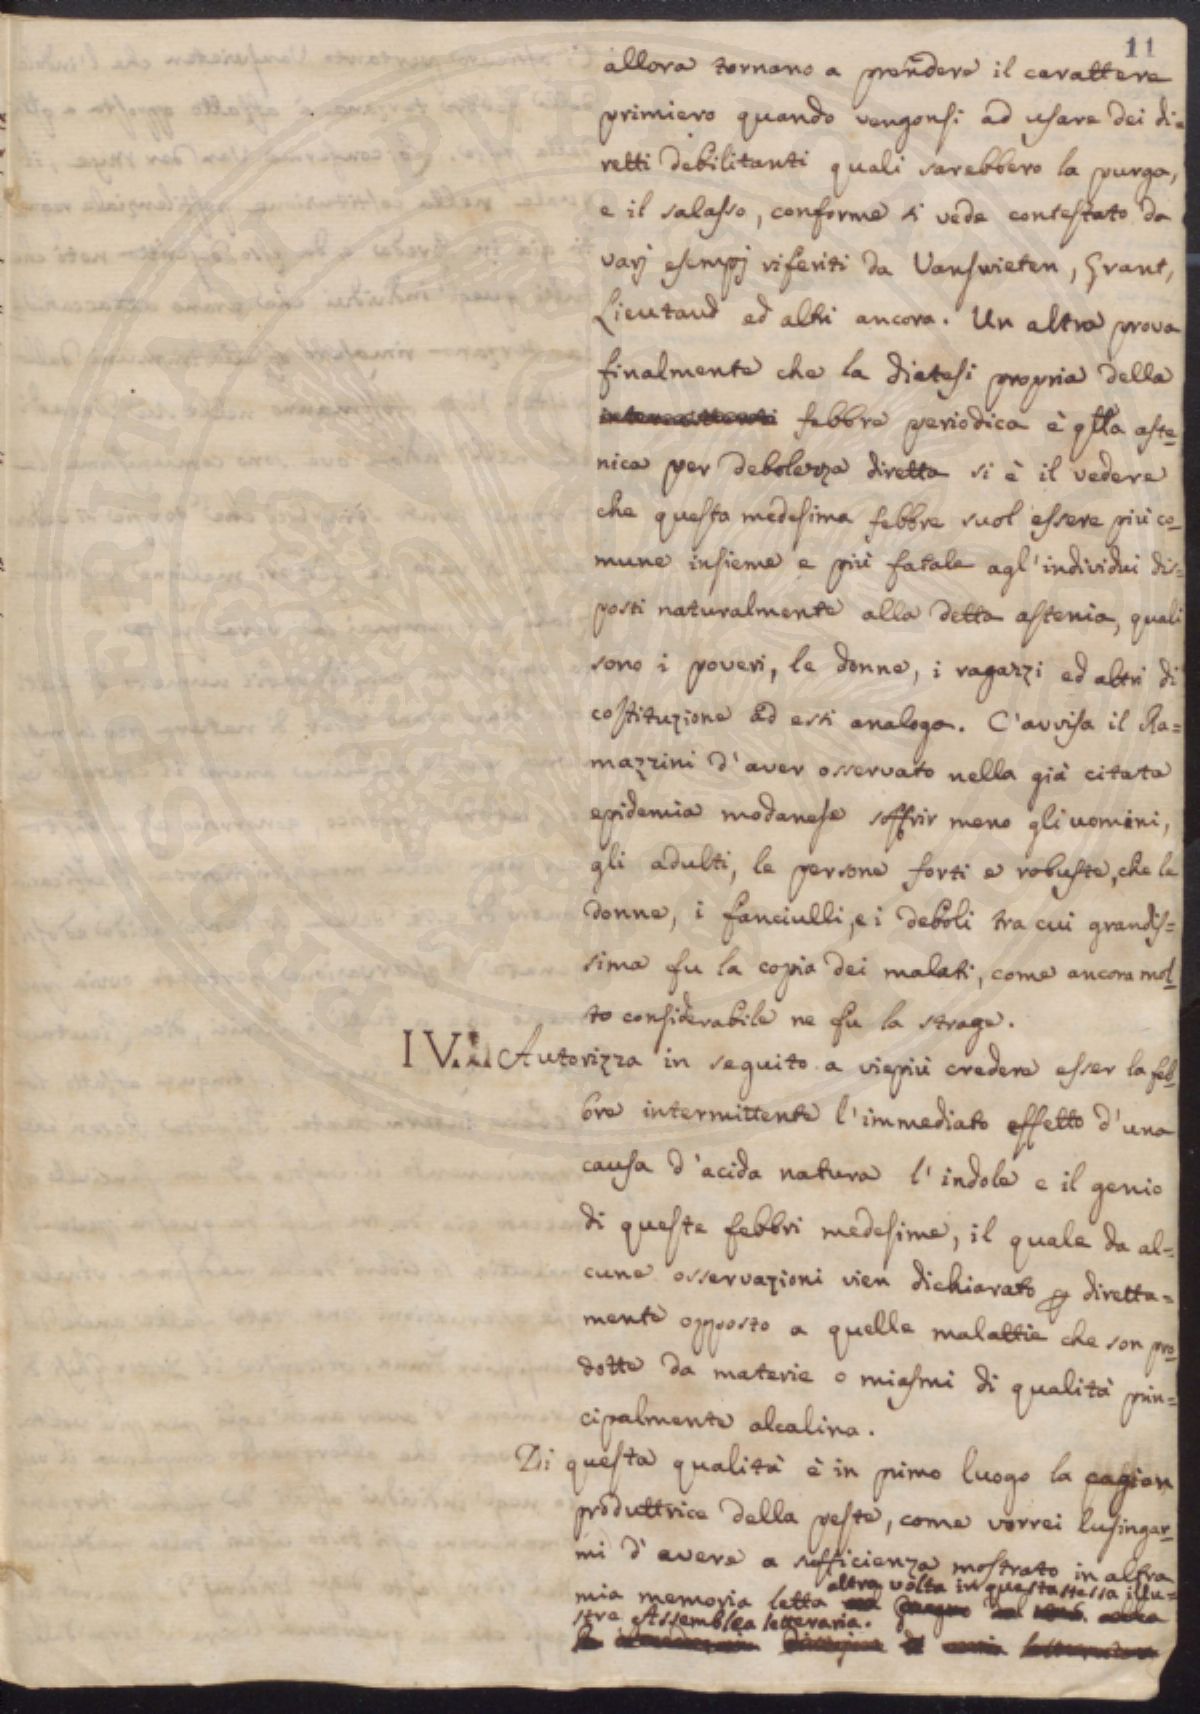 11
allora tornano a prendere il carattere
primiero quando vengonsi ad usare dei di=
retti debilitanti quali sarebbero la purga,
e il salasso, conforme si vede contestato da
varj esempj riferiti da Vanswieten, Grant,
Lieutaud ed altri ancora. Un altra prova
finalmente che la diatesi propria della
febbre periodica è qlla aste=
nica per debolezza diretta si è il vedere
che questa medesima febbre suol essere più co=
mune insieme e più fatale agl'individui dis=
posti naturalmente alla detta astenia, quali
sono i poveri, le donne, i ragazzi ed altri di
costituzione ad essi analoga. C'avvisa il Ra=
mazzini d'aver osservato nella già citata
epidemia modanese soffrir meno gli uomini,
gli adulti, le persone forti e robuste, che le
donne, i fanciulli, e i deboli tra cui grandis=
sima fu la copia dei malati, come ancora mol=
to considerabile ne fu la strage.
IV. Autorizza in seguito a viepiù credere esser la feb=
bre intermittente l'immediato effetto d'una
causa d'acida natura l'indole e il genio
di queste febbri medesime, il quale da al=
cune osservazioni vien dichiarato diretta=
mente opposto a quelle malattie che son pro=
dotte da materie o miasmi di qualità prin=
cipalmente alcalina.
Di questa qualità è in primo luogo la cagion
produttrice della peste, come vorrei lusingar=
mi d'avere a sufficienza mostrato in altra
mia memoria letta altra volta in questa stessa illu=
stre Assemblea letteraria.